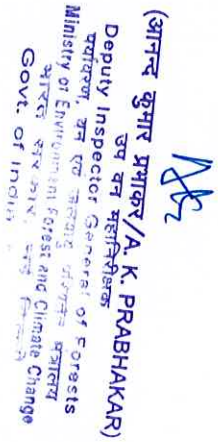 (आनन्द कुमार प्रभाकर/A. K. PRABHAKAR)
उप वन महानिरीक्षक
Deputy Inspector General of Forests
पर्यावरण, वन एवं जलवायु मंत्रालय
Ministry of Environment Forest and Climate Change
भारत सरकार,
Govt. of India